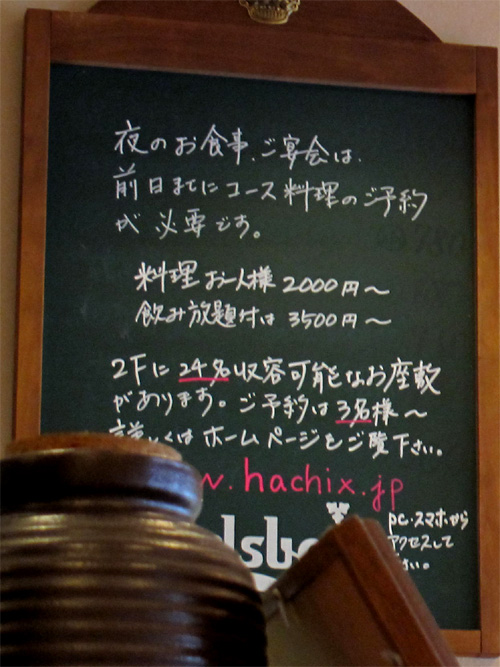 夜のお食事、ご宴会は、
前日までにコース料理のご予約
が必要です。
料理 お一人様 2000円〜
飲み放題付は 3500円〜
2Fに 24名収容可能なお座敷
があります。ご予約は3名様〜
詳しくは ホームページをご覧下さい。
w.hachix.jp
pc・スマホから
アクセスして
さい。